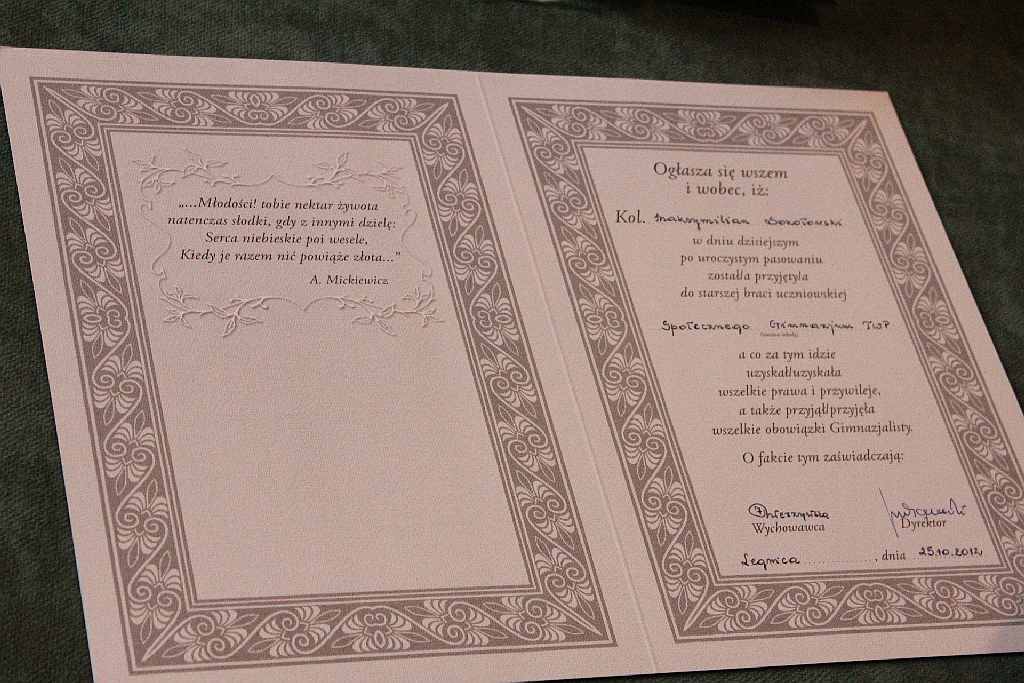 „...Młodości! tobie nektar żywota
natenczas słodki, gdy z innymi dzielę:
Serca niebieskie poi wesele,
Kiedy je razem nić powiąże złota...”
A. Mickiewicz
Ogłasza się wszem
i wobec, iż:
Kol. Maksymilian Sokołowski
w dniu dzisiejszym
po uroczystym pasowaniu
został/a przyjęty/a
do starszej braci uczniowskiej
Społecznego Gimnazjum TWP
a co za tym idzie
uzyskał/uzyskała
wszelkie prawa i przywileje,
a także przyjął/przyjęła
wszelkie obowiązki Gimnazjalisty.
O fakcie tym zaświadczają:
Wychowawca Dyrektor
Legnica, dnia 25.10.2012